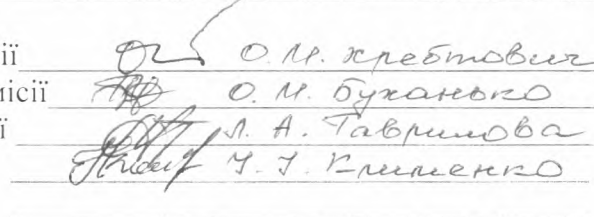 ії О. М. Хребтович
місії О. М. Буханько
ї Л. А. Гаврилова
Клименко